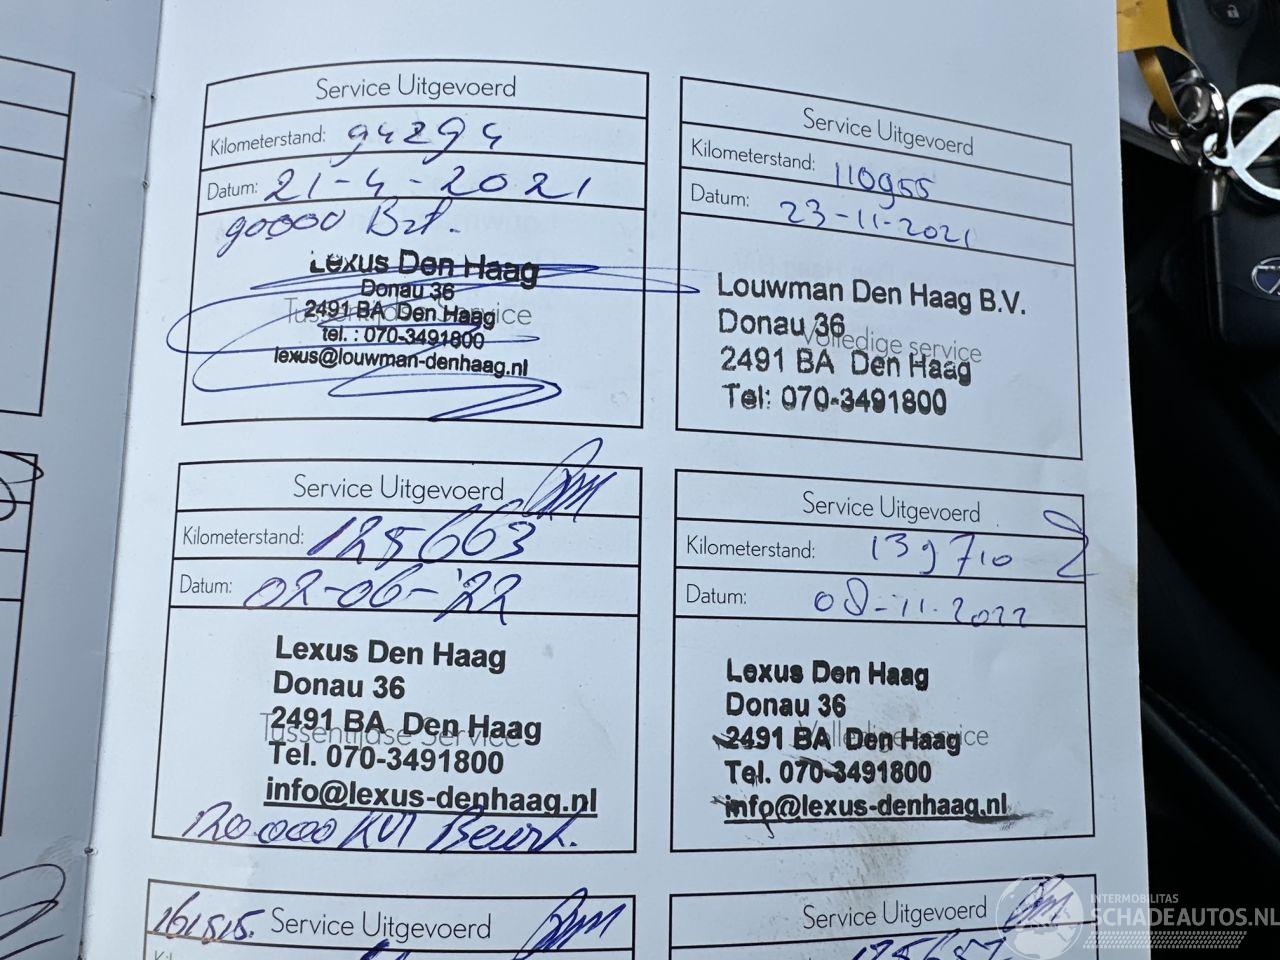 Service Uitgevoerd
Kilometerstand: 94294
Datum: 21-4-2021
90000 Brt.
Lexus Den Haag
Donau 36
2491 BA Den Haag
Tussentijdse Service
tel. : 070-3491800
lexus@louwman-denhaag.nl
Service Uitgevoerd
Kilometerstand: 110955
Datum: 23-11-2021
Louwman Den Haag B.V.
Donau 36
Volledige service
2491 BA Den Haag
Tel: 070-3491800
Service Uitgevoerd
Kilometerstand: 125663
Datum: 02-06-'22
Lexus Den Haag
Donau 36
2491 BA Den Haag
Tussentijdse Service
Tel. 070-3491800
info@lexus-denhaag.nl
120.000 KM Beurt.
Service Uitgevoerd
Kilometerstand: 139710
Datum: 08-11-2022
Lexus Den Haag
Donau 36
2491 BA Den Haag
Volledige service
Tel. 070-3491800
info@lexus-denhaag.nl
161515. Service Uitgevoerd
Service Uitgevoerd
INTERMOBILITAS
SCHADEAUTOS.NL